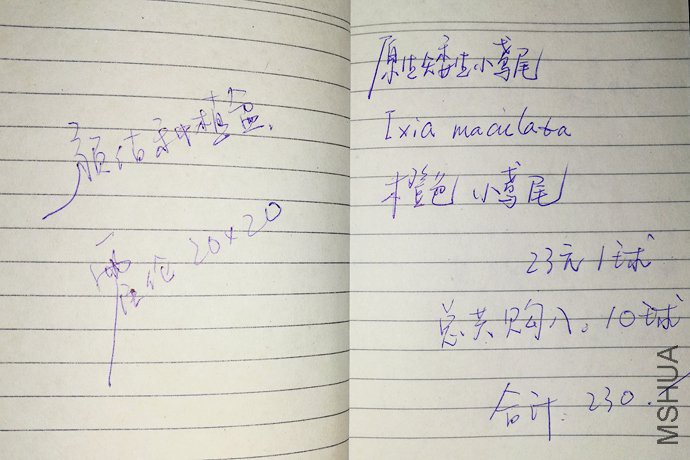 种植盆
20×20
原生矮生小鸢尾
Ixia maculata
橙色小鸢尾
23元1球
总共购入。10球
合计:230.
MSHUA